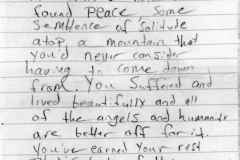 found Peace, Some
Semblence of Solitude
atop a mountain that
you'd never consider
having to come down
from. You Suffered and
lived beautifully and all
of the angels and humanity
are better off for it.
You've earned your rest